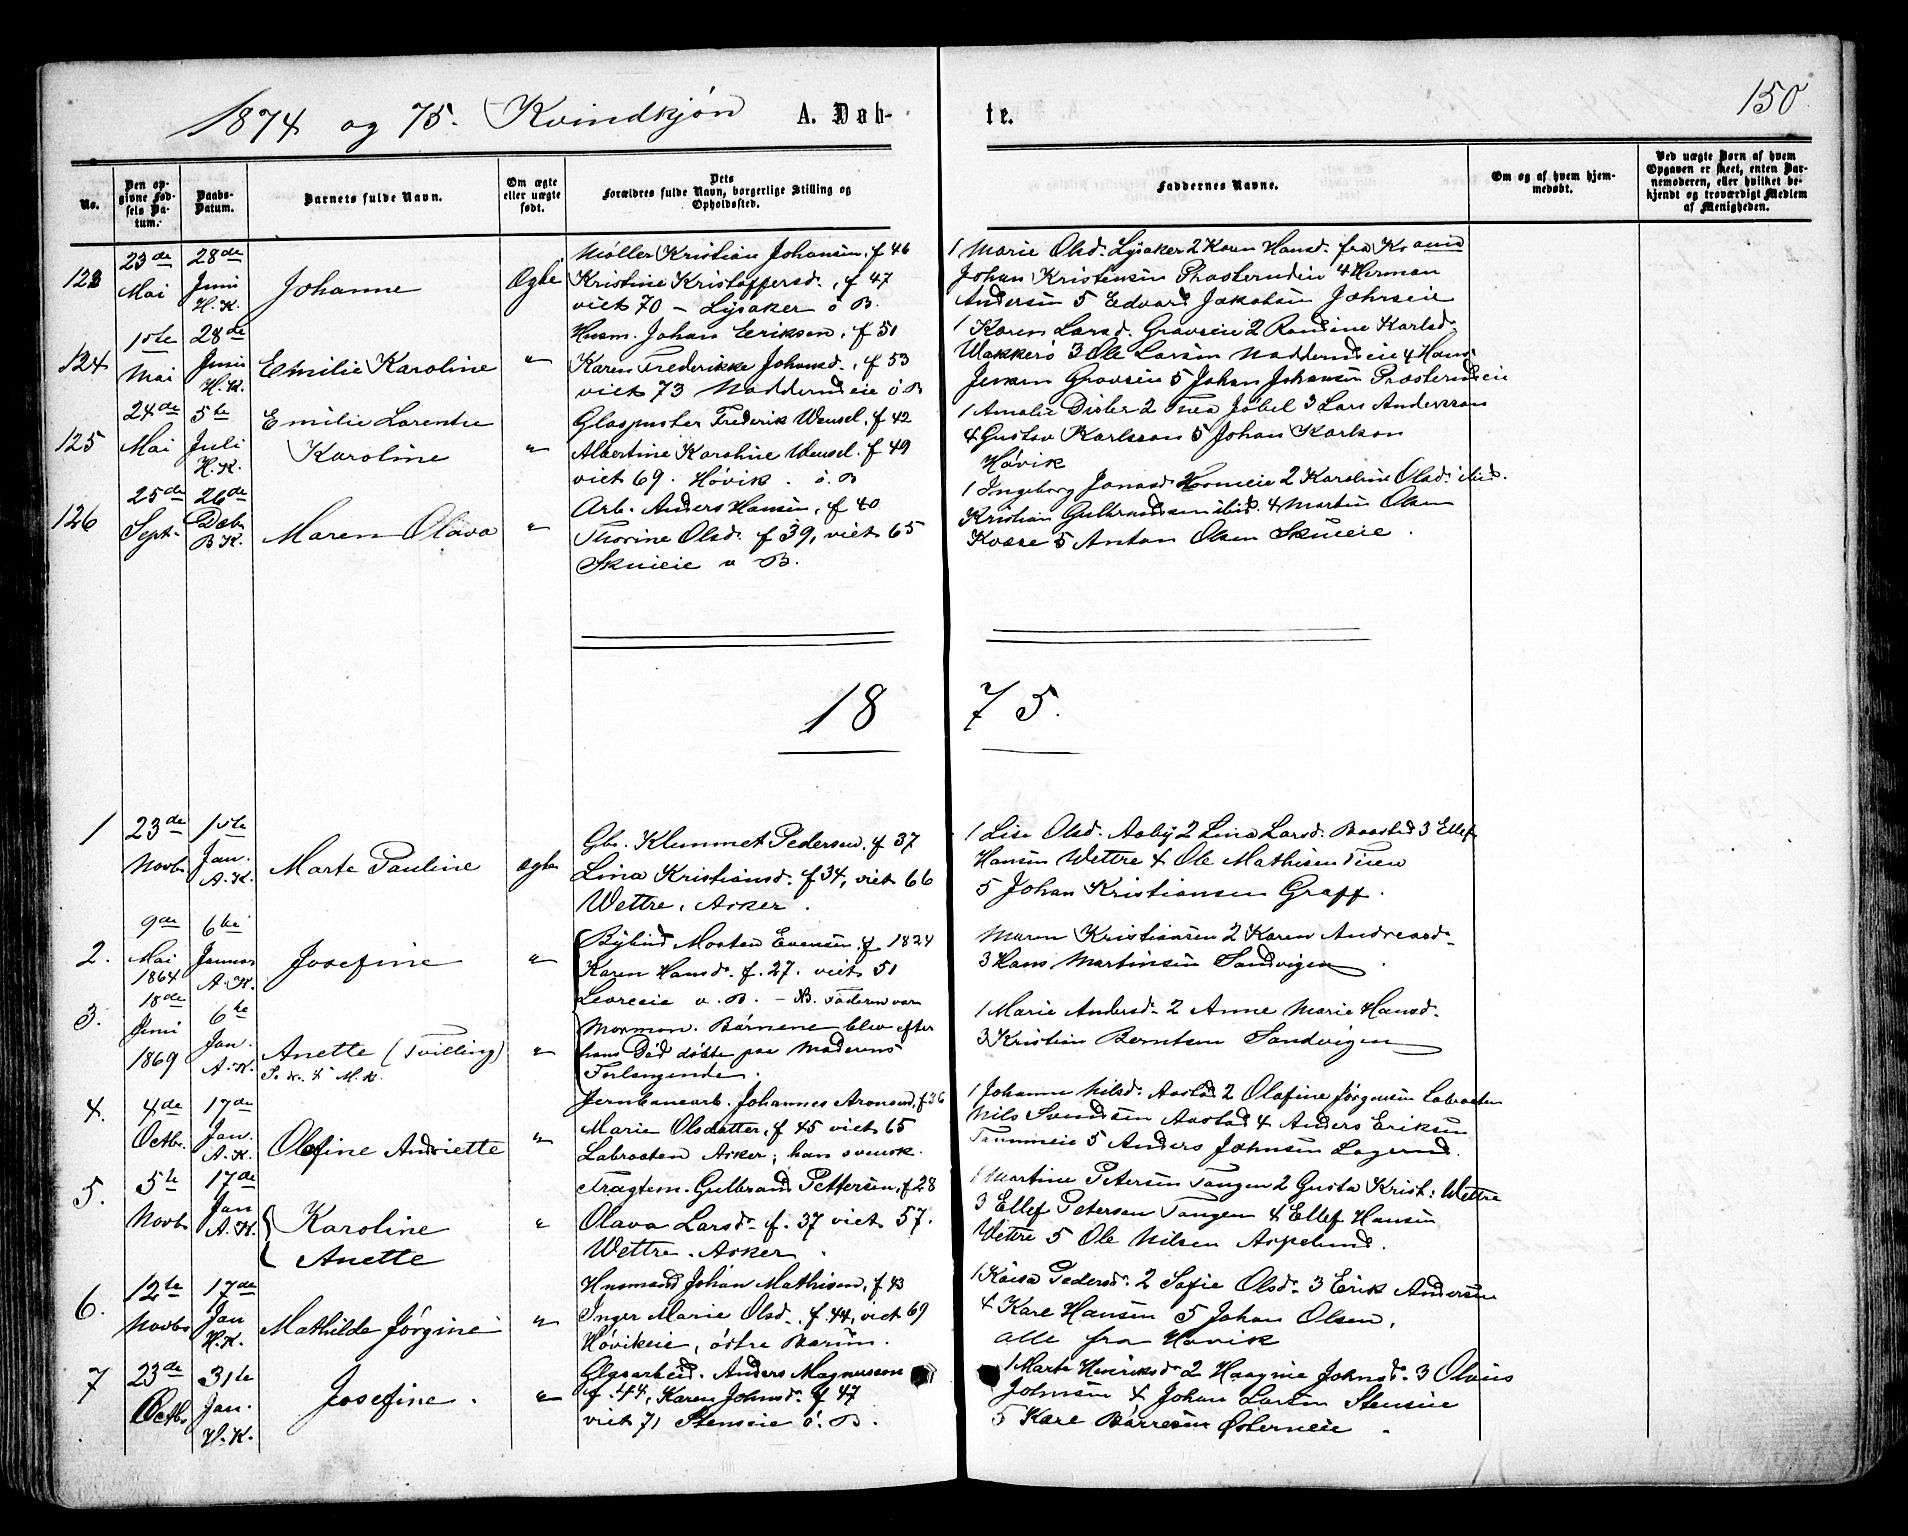 1874 og 75. Kvindkjøn
A. Døb-
te.
150
No.
Den opgivne Fødsels Datum.
Daabs-Datum.
Barnets fulde Navn.
Om ægte eller uægte født.
Dets Forældres fulde Navn, borgerlige Stilling og Opholdssted.
Faddernes Navne.
Om og af hvem hjemmedøbt.
Ved uægte Børn af hvem Opgaven er skeet, enten Barnemoderen, eller hvilket bekjendt og troværdigt Medlem af Menigheden.
123
23de Mai
28de Juni H.K.
Johanne
Ægte
Møller Kristian Johansen, f 46
Kristine Kristoffersd., f 47
viet 70 - Lysaker ö B.
1 Marie Olsd. Lysaker 2 Karen Hansd. fra
Johan Kristensen 4 Herman
Andersen 5 Edvard Jakobsen
124
15te Mai
28de Juni H.K.
Emilie Karoline
"
Husm. Johan Eriksen, f 51
Karen Frederikke Johansd., f 53
viet 73 ö B
1 Karen Larsd. Gravseie 2 Karlsd.
Wækkerö 3 Ole Larsen 4 Hans
Jensen Gravseie 5 Johan Johansen
125
24de Mai
5te Juli H.K.
Emilie Lorentse
Karoline
"
Glaspuster Frederik Wensel, f 42
Albertine Karoline Wensel. f 49
viet 69. Høvik. ö. B
1 Amalie 2 3 Lars Anderssen
4 Gustav Karlsson 5 Johan Karlson
Høvik
126
25de Sept.
26de Decb. B.K.
Maren Olava
"
Arb. Anders Hansen, f 40
Thorine Olsd. f 39, viet 65
Skuieie v B.
1 Ingeborg Jonasd. 2 Karoline Olsd. ibid.
Kristian Gulbrandsen ibid. 4 Martin Olsen
5 Anton Olsen Skuieie.
18
75.
1
23de Novb.
1ste Jan. A.K.
Marte Pauline
Ægte
Gbr. Klemmet Pedersen. f 37
Lina Kristiansd. f 34, viet 66
Wettre, Asker.
1 Lise Olsd. Aaby 2 Lina Larsd. Baastad 3 Ellef
Hansen Wettre 4 Ole Mathisen
5 Johan Kristiansen Graff.
2.
9de Mai 1864
6te Januar A.K.
Josefine
"
Morten Evensen f. 1824
Karen Hansd. f. 27. viet 51
v. B. - NB. Faderen var
Mormon. Börnene blev efter
hans Död döbte paa Moderens
Forlangende.
Maren Kristiansen 2 Karen Andreasd.
3 Hans Martinsen Sandvigen.
3.
18de Juni 1869
6te Jan. A.K.
Anette (Tvilling)
"
1 Marie Andersd. 2 Anne Marie Hansd.
3 Kristian Berntsen Sandvigen
4.
4de Octb.
17de Jan. A.K.
Olefine Andriette
"
Jernbanearb. Johannes Aronsen, f 36
Marie Olsdatter, f 45 viet 65
Labraaten Asker, han svensk.
1 Johanne Nilsd. Aastad 2 Olafine Jørgensen Labraaten
Nils Svendsen Aastad 4 Anders Eriksen
5 Anders Johnsen
5.
5te Novb.
17de Jan A.K.
Karoline
Anette
"
Gulbrand Pettersen, f 28
Olava Larsd. f. 37 viet 57.
Wettre. Asker.
1 Martine Petersen Tangen 2 Gusta Krist: Wettre
3 Ellef Petersen Tangen 4 Ellef Hansen
Wettre 5 Ole Nilsen Aspelund.
6.
12te Novb.
17de Jan H.K.
Mathilde Jørgine
"
Husmand Johan Mathisen, f 43
Inger Marie Olsd. f. 44, viet 69
Høvikeie, östre Bærum.
1 Kaisa Pedersd. 2 Sofie Olsd. 3 Erik Andersen
4 Kare Hansen 5 Johan Olsen,
alle fra Høvik
7
23de Octb.
31te Jan. H.K.
Josefine.
"
Anders Magnussen
f. 44, Karen Johnsd. f 47
viet 71 Stenseie ö. B.
1 Marte Henriksd. 2 Johnsd. 3 Olaus
Johnsen 4 Johan Larsen Stenseie
5 Kare Østerneie.